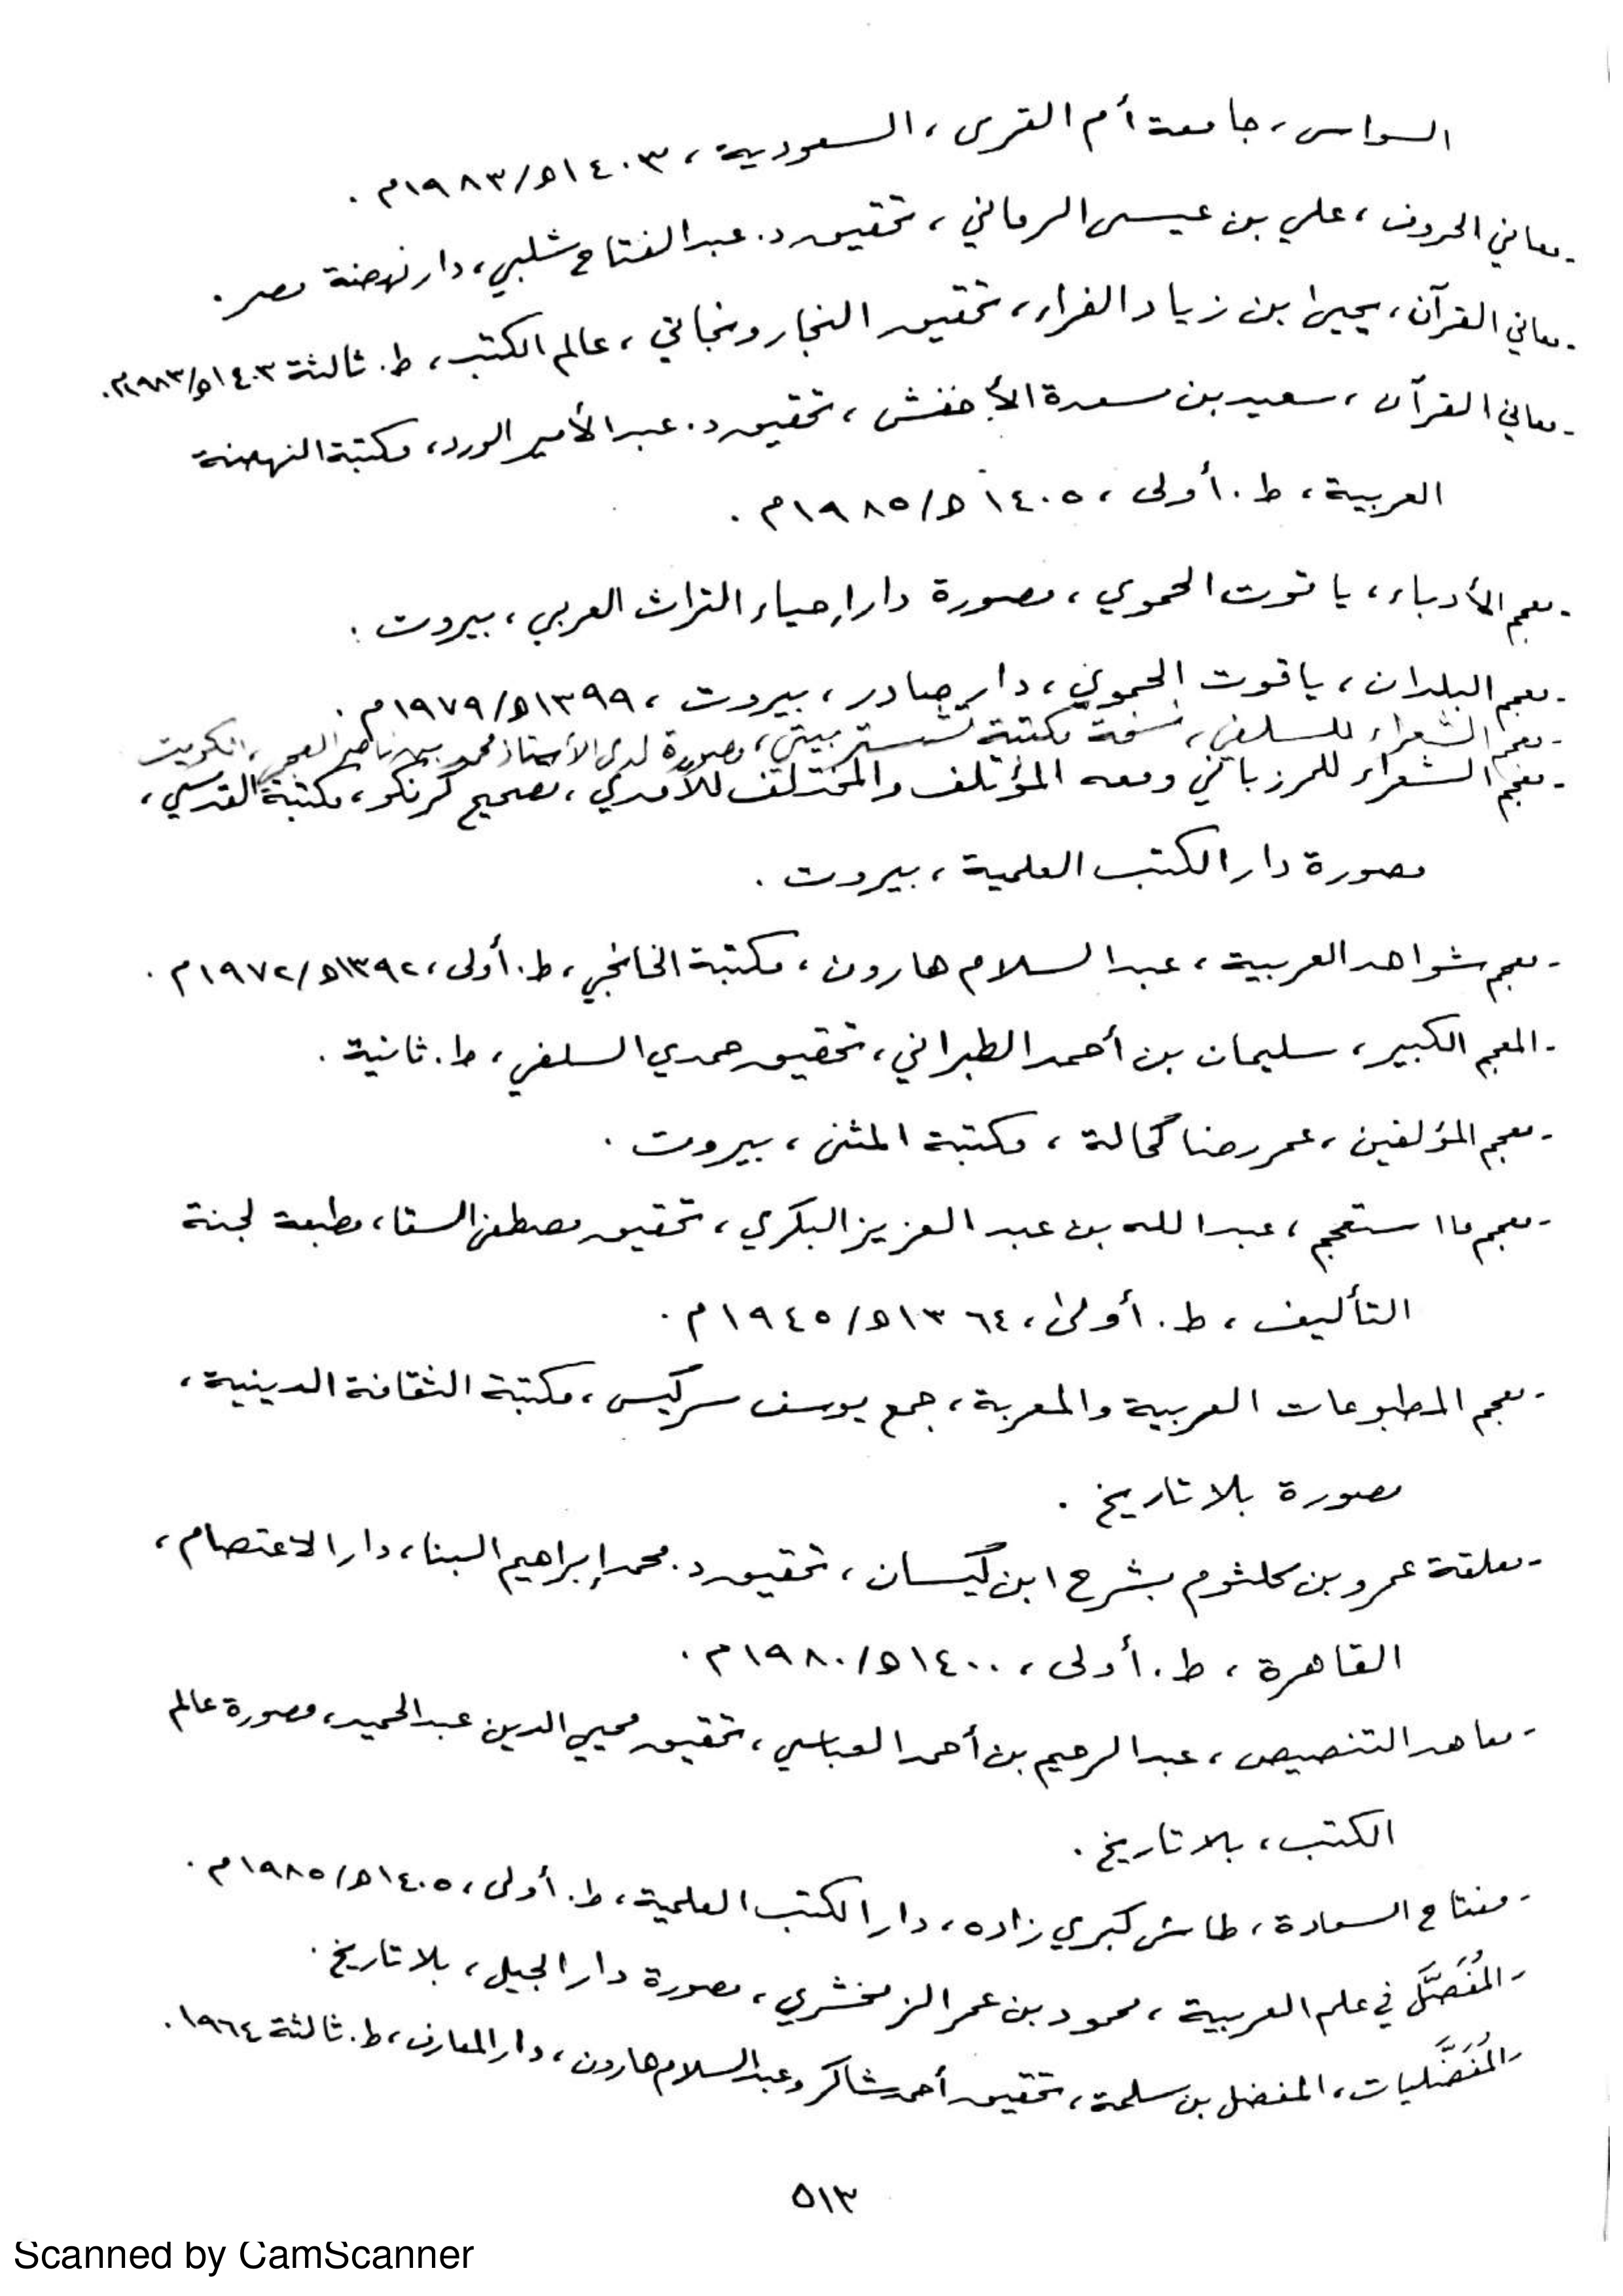 السواس، جامعة أم القرى، السعودية، ١٤٠٣ه/١٩٨٣م.
- معاني الحروف، علي بن عيسى الرماني، تحقيق د. عبدالفتاح شلبي، دار نهضة مصر.
- معاني القرآن، يحيى بن زياد الفراء، تحقيق النجار ونجاتي، عالم الكتب، ط. ثالثة ١٤٠٣ه/١٩٨٣م.
- معاني القرآن، سعيد بن مسعدة الأخفش، تحقيق د. عبدالأمير الورد، مكتبة النهضة
العربية، ط. أولى، ١٤٠٥ه/١٩٨٥م.
- معجم الأدباء، ياقوت الحموي، مصورة دار إحياء التراث العربي، بيروت.
- معجم البلدان، ياقوت الحموي، دار صادر، بيروت، ١٣٩٩ه/١٩٧٩م.
- معجم الشعراء للسلفي، نسخة مكتبة تشستر بيتي، مصورة لدى الأستاذ محمد بن ناصر العجمي، الكويت
- معجم الشعراء للمرزباني ومعه المؤتلف والمختلف للآمدي، تصحيح كرنكو، مكتبة القدسي،
مصورة دار الكتب العلمية، بيروت.
- معجم شواهد العربية، عبد السلام هارون، مكتبة الخانجي، ط. أولى، ١٣٩٢ه/١٩٧٢م.
- المعجم الكبير، سليمان بن أحمد الطبراني، تحقيق حمدي السلفي، ط. ثانية.
- معجم المؤلفين، عمر رضا كحالة، مكتبة المثنى، بيروت.
- معجم ما استعجم، عبدالله بن عبد العزيز البكري، تحقيق مصطفى السقا، مطبعة لجنة
التأليف، ط. أولى، ١٣٦٤ه/١٩٤٥م.
- معجم المطبوعات العربية والمعربة، جمع يوسف سركيس، مكتبة الثقافة الدينية،
مصورة بلا تاريخ.
- معلقة عمرو بن كلثوم بشرح ابن كيسان، تحقيق د. محمد إبراهيم البنا، دار الاعتصام،
القاهرة، ط. أولى، ١٤٠٠ه/١٩٨٠م.
- معاهد التنصيص، عبد الرحيم بن أحمد العباسي، تحقيق محيي الدين عبدالحميد، مصورة عالم
الكتب، بلا تاريخ.
- مفتاح السعادة، طاش كبري زاده، دار الكتب العلمية، ط. أولى، ١٤٠٥ه/١٩٨٥م.
- المُفَصَّل في علم العربية، محمود بن عمر الزمخشري، مصورة دار الجيل، بلا تاريخ.
- المُفَضَّليات، المفضل بن سلمة، تحقيق أحمد شاكر وعبدالسلام هارون، دار المعارف، ط. ثالثة ١٩٦٤.
٥١٣
Scanned by CamScanner